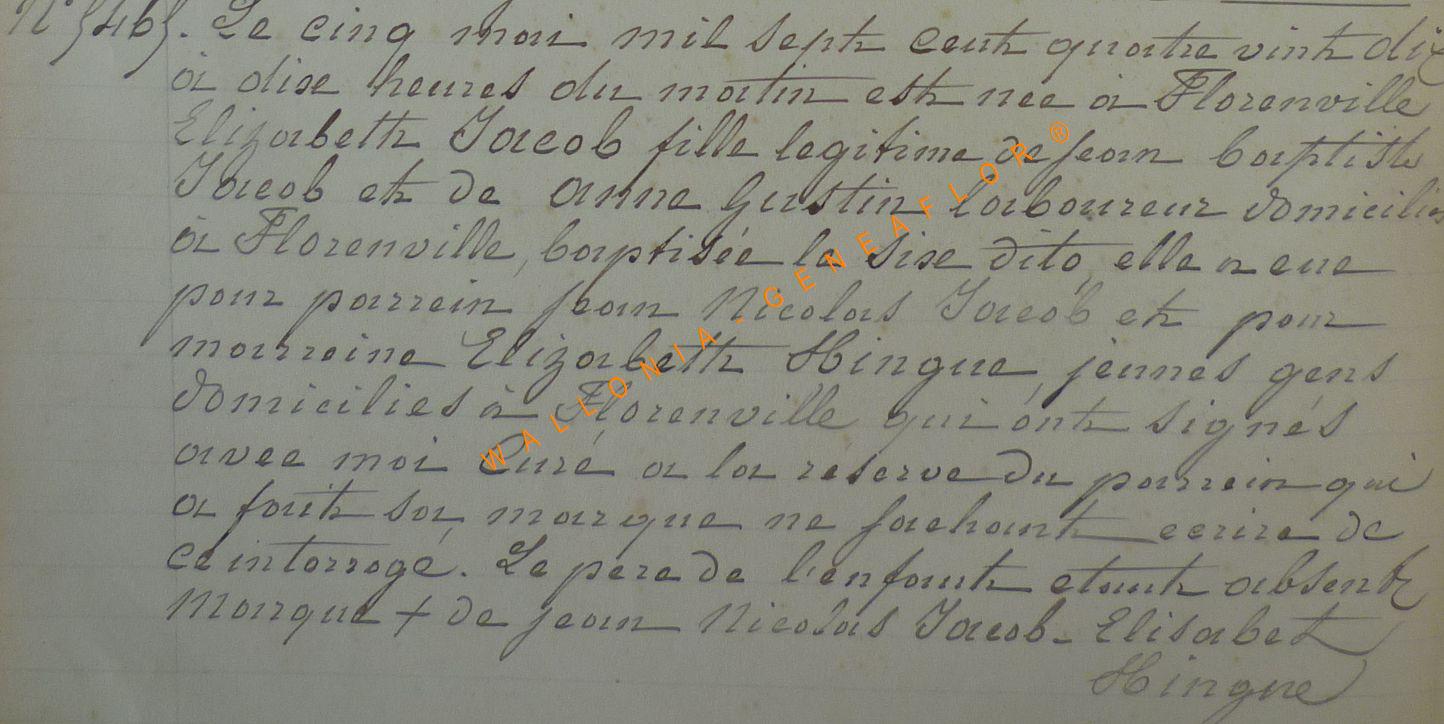 N° 5465. Le cinq mai mil sept cent quatre vint dix
à dixe heures du matin est nee a Florenville
Elizabeth Jacob fille legitime de jean baptiste
Jacob et de anne Gustin laboureur domicilies
à Florenville, baptisée le sixe dito, elle a eue
pour parrein jean Nicolas Jacob et pour
marreine Elizabeth Hingue, jeunes gens
domicilies à Florenville qui ont signés
avec moi Curé a la reserve du parrein qui
a fait sa marque ne sachant ecrire de
ce intorrogé. Le pere de l'enfant etant absent
Marque + de jean Nicolas Jacob - Elisabet
Hingue
WALLONIA - GENEAFLOR ®